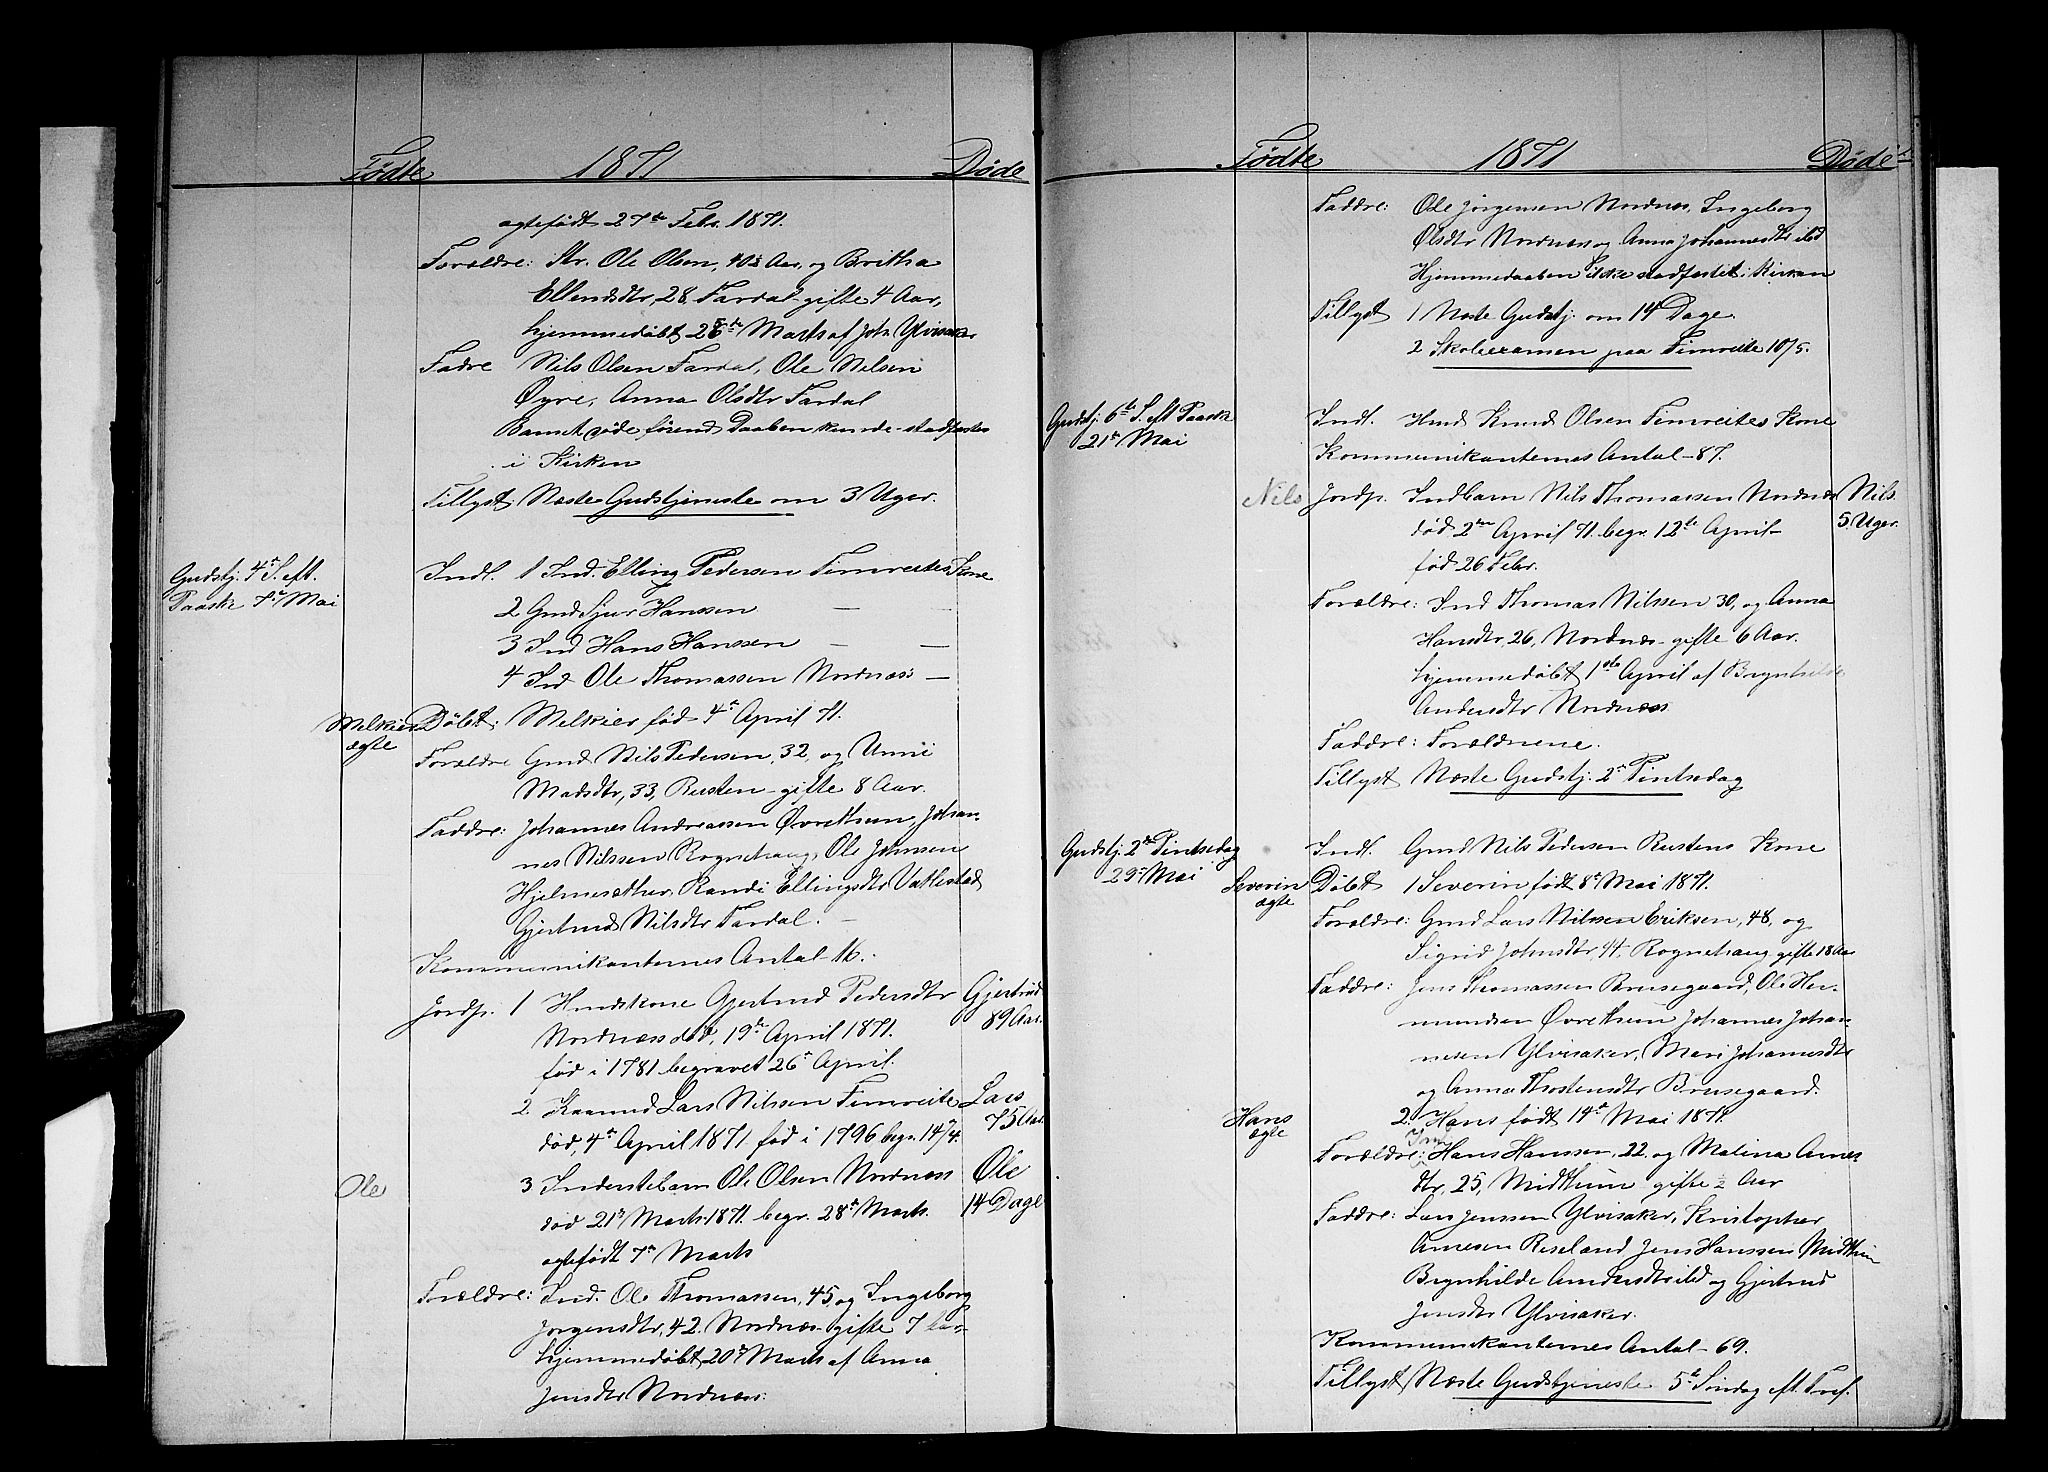 Fødte 1871 Døde
ægtefødt 27de Febr. 1871.
Forældre: Str. Ole Olsen, Aar, og Britha
Ellendsdtr, 28 Fardal gifte 4 Aar,
hjemmedøbt 26de Marts af Joh. Ylvisaker
Fadre Nils Olsen Fardal, Ole Nilsen
Øyre, Anna Olsdtr Fardal
Barnet døde førend Daaben kunde stadfæstes
i Kirken
Tillyst: Næste Gudstjeneste om 3 Uger.
Gudstj. 4de S. eft.
Paaske 7de Mai
Indl. 1 Ind. Elling Pedersen Fimreites Kone
2 Gmd Sjur Hanssen — —
3 Ind Hans Hanssen — —
4 Ind Ole Thomassen Nordnæs —
Melkier
ægte
Døbt: Melkier fød 4de April 71.
Forældre Gmd Nils Pedersen, 32, og Unni
Madsdtr, 33, Rusten - gifte 8 Aar.
Faddre: Johannes Andreassen Øvrethun, Johan-
nes Nilssen Rognehaug, Ole Johnsen
Hjelmesæther, Randi Ellingsdtr Vatlestad
Gjertrud Nilsdtr Fardal. —
Kommunikanternes Antal - 16.
Jordp. 1 Huuskone Gjertrud Pedersdtr Gjertrud
Nordnæs død, 19de April 1871. 89 Aar.
fød i 1781 begravet 26de April.
2. Kaarmd Lars Nilssen Fimreite Lars
død, 4de April 1871 fød i 1796 begr. 14/4. 75 Aar
Ole 3 Inderstebarn Ole Olsen Nordnæs Ole
død 21de Marts 1871. begr. 28de Marts. 14 Dage
ægtefødt 7de Marts
Forældre: Ind. Ole Thomassen, 45, og Ingeborg
Jørgensdtr, 42, Nordnæs - gifte 7 Aar
hjemmedøbt 20de Marts af Anna
Jensdtr Nordnæs.
Fødte 1871 Døde
Faddre: Ole Jørgensen Nordnæs, Ingeborg
Olsdtr Nordnæs og Anna Johannesdtr ibd
Hjemmedaaben ikke stadfæstet i Kirken
Tillyst 1 Næste Gudstj. om 14 Dage.
2 Skoleexamen paa Fimreite 10/5.
Gudstj. 6te S. eft Paaske
21de Mai
Indl. Hmd Knud Olsen Fimreites Kone
Kommunikanternes Antal - 87.
Nils Jordp. Indbarn Nils Thomassen Nordnæs Nils
død 2den April 71. begr. 12te April 5 Uger.
fød 26 Febr.
Forældre: Ind Thomas Nilssen 30, og Anna
Hansdtr, 26, Nordnæs - gifte 6 Aar.
hjemmedøbt 1ste April af Brynhilde
Andersdtr Nordnæs
Faddre: Forældrene.
Tillyst Næste Gudstj. 2den Pintsedag
Gudstj. 2den Pintsedag
29de Mai
Indl. Gmd Nils Pedersen Rustens Kone
Severin
ægte
Døbt 1 Severin født 8de Mai 1871.
Forældre: Gmd Lars Nilssen Eriksen, 48, og
Sigrid Johnsdtr, 44, Rognehaug gifte 18 Aar
Faddre: Jens Thomassen Brusegaard, Ole Her-
mundsen Øvrethun Johannes Johan-
nesen Ylvisaker, Mari Johannesdtr
og Anna Thostensdtr Brusegaard.
Hans
ægte
2. Hans født 14de Mai 1871.
Forældre: Ind Hans Hanssen, 22, og Malina Arnes-
dtr, 25, Midthun gifte 2 Aar
Faddre: Lars Jenssen Ylvisaker, Kristopher
Arnesen Riseland, Jens Hanssen Midthun
Brynhilde Andersdtr ibd og Gjertrud
Jensdtr Ylvisaker.
Kommunikanternes Antal - 69.
Tillyst Næste Gudstjeneste 5te Søndag eft. Tref.